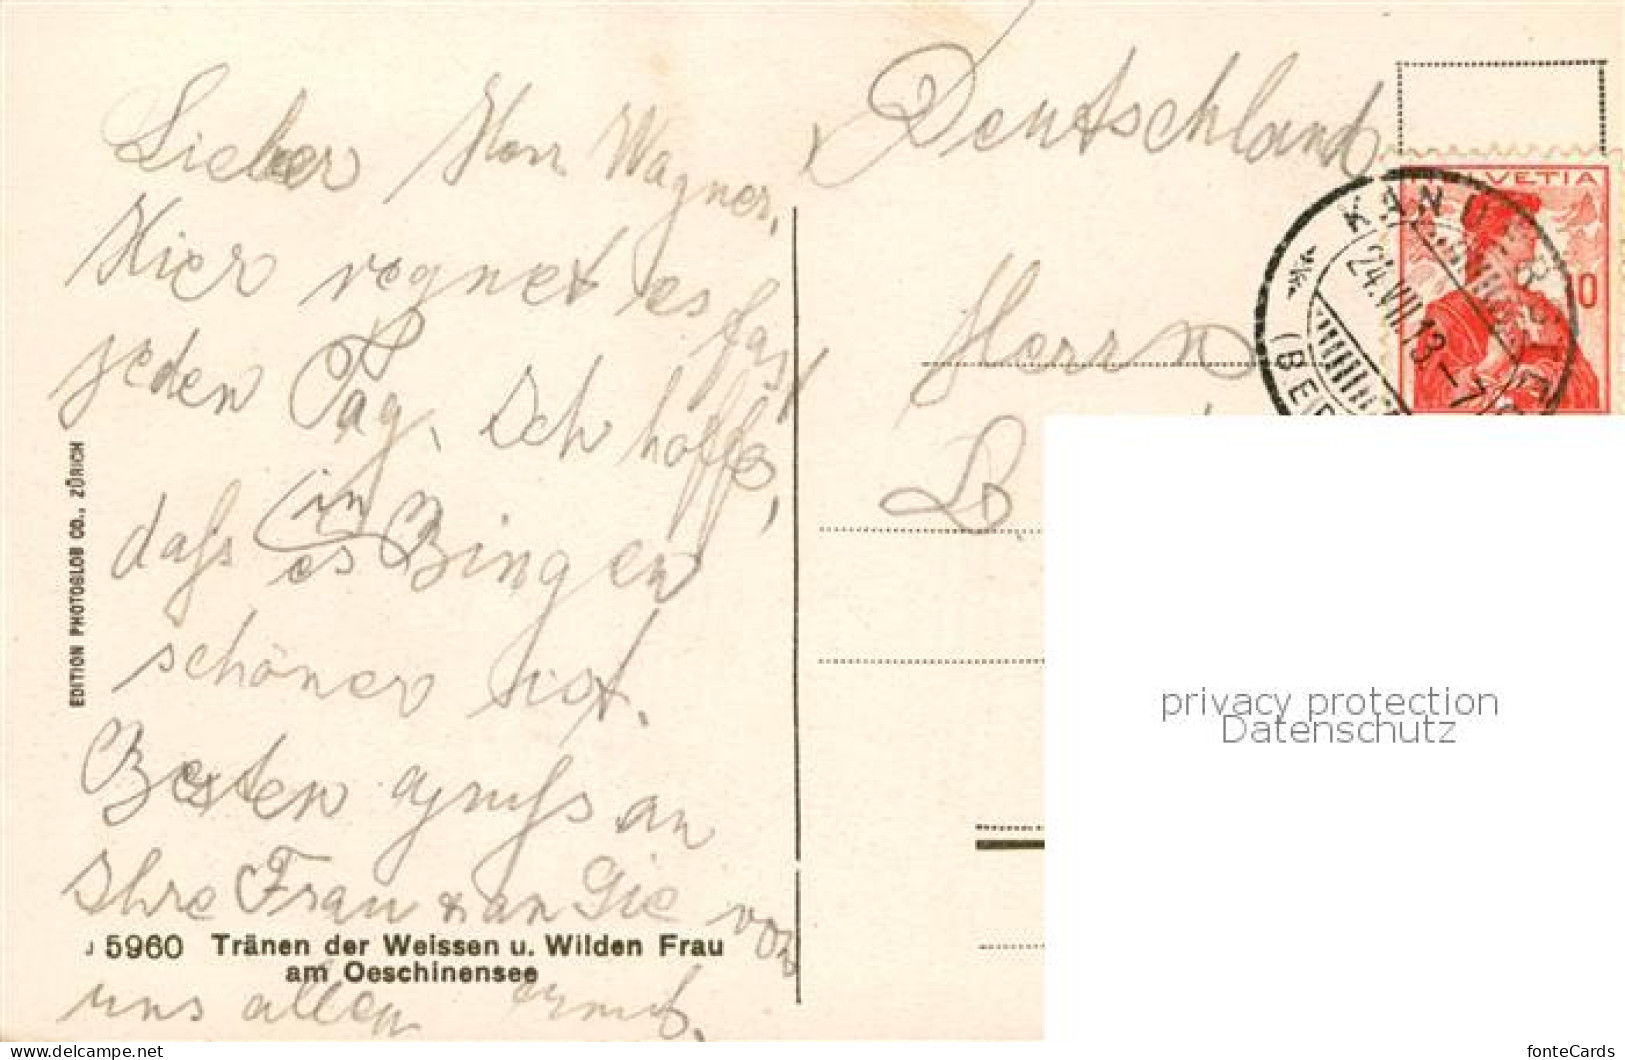 Lieber Herr Wagner,
Hier regnet es fast
jeden Tag. Ich hoffe,
dass es (in) Bingen
schöner ist.
Besten gruss an
Ihre Frau & an Sie von
uns allen
J 5960 Tränen der Weissen u. Wilden Frau
am Oeschinensee
EDITION PHOTOGLOB CO., ZÜRICH
Deutschland
Herrn
HELVETIA
24.VII.13-7
privacy protection
Datenschutz
fonteCards
www.delcampe.net